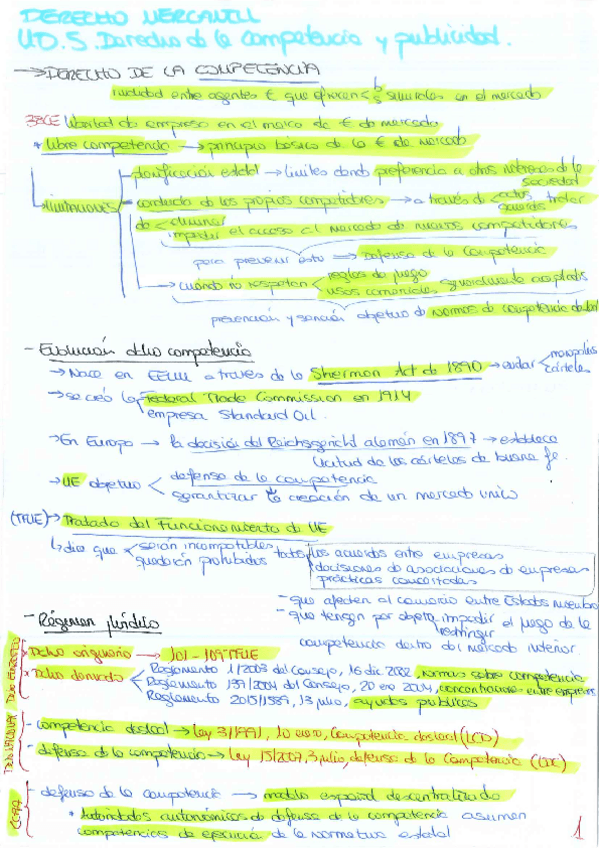 DERECHO MERCANTIL
UD.5. Derecho de la competencia y publicidad.
→ DERECHO DE LA COMPETENCIA
rivalidad entre agentes € que ofrecen < b s similares en el mercado
38CE libertad de empresa en el marco de € de mercado
* libre competencia → principio básico de la € de mercado
limitaciones
planificación estatal → límites dando preferencia a otros intereses de la sociedad
conducta de los propios competidores → a través de < actos acuerdos tratar
de < eliminar
impedir el acceso al mercado de nuevos competidores
para prevenir esto → Defensa de la Competencia
→ cuando no respetan < reglas de juego
usos comerciales, generalmente aceptados
prevención y sanción objetivo de normas de competencia desleal
- Evolución dcho competencia
→ Nace en EEUU a través de la Sherman Act de 1890 → evitar < monopolios
cárteles
→ se creó la Federal Trade Commission en 1914
empresa Standard Oil.
→ En Europa → la decisión del Reichsgericht alemán en 1897 → establece
licitud de los cárteles de buena fe.
→ UE objetivo < defensa de la competencia
garantizar la creación de un mercado único
(TFUE) → Tratado del Funcionamiento de UE
↳ dice que < serán incompatibles
quedarán prohibidos
todos los acuerdos entre empresas
decisiones de asociaciones de empresas
prácticas concertadas
- que afecten al comercio entre Estados miembro
- que tengan por objeto impedir el juego de la
restringir
competencia dentro del mercado interior.
- Régimen jurídico
Dcho originario → 101 - 109 TFUE
Dcho derivado
Reglamento 1/2003 del Consejo, 16 dic 2002, normas sobre competencia
Reglamento 139/2004 del Consejo, 20 ene 2004, concentraciones entre empresas
Reglamento 2015/1589, 13 julio, ayudas públicas
- competencia desleal → Ley 3/1991, 10 enero, Competencia desleal (LCD)
- defensa de la competencia → Ley 15/2007, 3 julio, defensa de la Competencia (LDC)
CCAA
- defensa de la competencia → modelo español descentralizado
* Autoridades autonómicas de defensa de la competencia asumen
competencias de ejecución de la normativa estatal
1